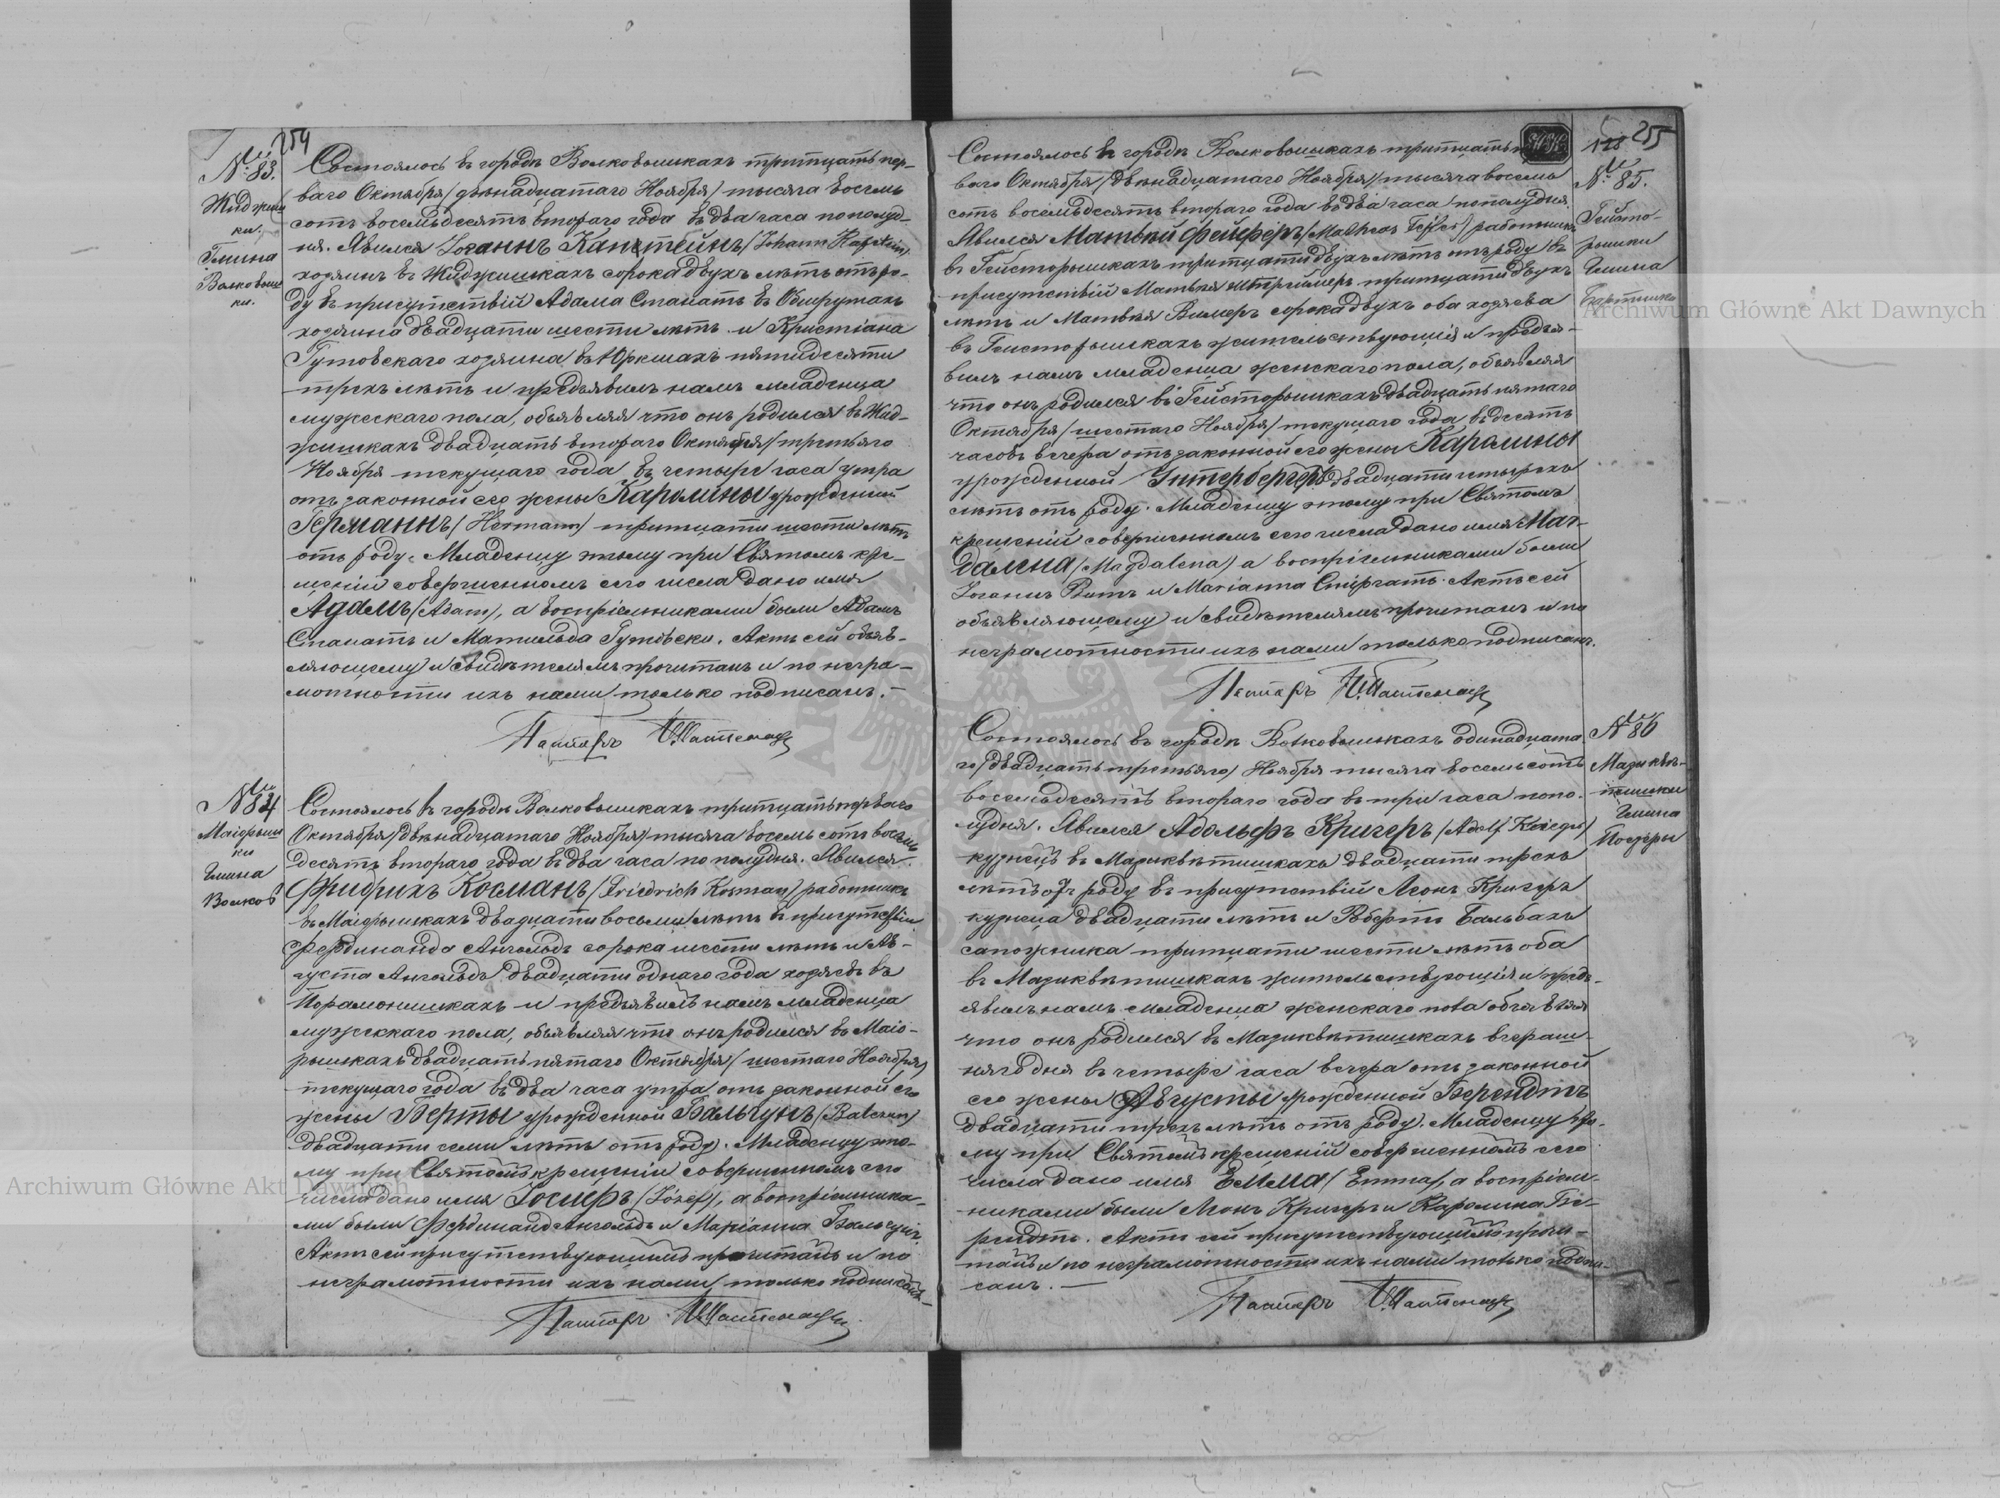 254
№ 83.
Жиджиш
ки.
Гмина
Волковыш
ки.
Состоялось в городѣ Волковышкахъ тритцать пер-
ваго Октября / двѣнадцатаго Ноября / тысяча восемь
сотъ восемьдесятъ втораго года въ два часа пополуд-
ня. Явился Іоганнъ Капштейнъ / Johann Kapstein /
хозяинъ въ Жиджишкахъ сорока двухъ лѣтъ отъ ро-
ду въ присутствіи Адама Станатъ въ
хозяина двадцати шести лѣтъ и Кристіана
Гутовскаго хозяина въ Юркшахъ пятидесяти
трехъ лѣтъ и предъявилъ намъ младенца
мужескаго пола, объявляя что онъ родился въ Жид-
жишкахъ двадцать втораго Октября / третьяго
Ноября текущаго года въ четыре часа утра
отъ законной его жены Каролины урожденной
Германнъ / Hermann / тритцати шести лѣтъ
отъ роду. Младенцу этому при Святомъ кре-
щеніи совершенномъ сего числа дано имя
Адамъ / Adam /, а воспріемниками были Адамъ
Станатъ и Матильда Гутовски. Актъ сей объяв-
ляющему и свидѣтелямъ прочитанъ и по негра-
мотности ихъ нами только подписанъ. —
Пасторъ
№ 84
Маіорыш
ки
Гмина
Волков
Состоялось въ городѣ Волковышкахъ тритцать перваго
Октября / двѣнадцатаго Ноября / тысяча восемь сотъ восемь
десятъ втораго года въ два часа пополудня. Явился
Фридрихъ Косманъ / Friedrich Kosman / работникъ
въ Маіорышкахъ двадцати восьми лѣтъ въ присутствіи
Фердинанда Ангольдъ сорока шести лѣтъ и Ав-
густа Ангольдъ двадцати одного года хозяевъ въ
Порамонишкахъ и предъявилъ намъ младенца
мужескаго пола, объявляя что онъ родился въ Маіо-
рышкахъ двадцать пятаго Октября / шестаго Ноября /
текущаго года въ два часа утра отъ законной его
жены Берты урожденной Бальчунъ / Balczun /
двадцати семи лѣтъ отъ роду. Младенцу это-
му при Святомъ крещеніи совершенномъ сего
числа дано имя Іосифъ / Józef /, а воспріемника-
ми были Фердинандъ Ангольдъ и Маріанна
Актъ сей присутствующимъ прочитанъ и по
неграмотности ихъ нами только подписанъ. —
Пасторъ
128 255
№ 85.
Гейсто-
рышки
Гмина
Бартники
Состоялось въ городѣ Волковышкахъ тритцать
ваго Октября / двѣнадцатаго Ноября / тысяча восемь
сотъ восемьдесятъ втораго года въ два часа пополудня.
Явился Матвѣй Фейферъ / Mathias Feifer / работникъ
въ Гейсторышкахъ тритцати двухъ лѣтъ отъ роду въ
присутствіи Матвѣя тритцати двухъ
лѣтъ и Матвѣя Вимеръ сорока двухъ оба хозяева
въ Гейсторышкахъ жительствующія и предъя-
вилъ намъ младенца женскаго пола, объявляя
что онъ родился въ Гейсторышкахъ двадцать пятаго
Октября / шестаго Ноября / текущаго года въ десять
часовъ вечера отъ законной его жены Каролины
урожденной Унтербергеръ двадцати четырехъ
лѣтъ отъ роду. Младенцу этому при Святомъ
крещеніи совершенномъ сего числа дано имя Маг-
далина / Magdalena / а воспріемниками были
Іоганнъ и Маріанна Актъ сей
объявляющему и свидѣтелямъ прочитанъ и по
неграмотности ихъ нами только подписанъ.
Пасторъ
№ 86
Мазиквѣ-
тишки
Гмина
Состоялось въ городѣ Волковышкахъ одинадцата
го / двадцать третьяго / Ноября тысяча восемьсотъ
восемьдесятъ втораго года въ три часа попо-
лудня. Явился Адольфъ Кригеръ / Adolf Krieger /
кузнецъ въ Мазиквѣтишкахъ двадцати трехъ
лѣтъ отъ роду въ присутствіи Леонъ Кригеръ
кузнеца двадцати лѣтъ и Робертъ Бальбахъ
сапожника тритцати шести лѣтъ оба
въ Мазиквѣтишкахъ жительствующія и предъ-
явилъ намъ младенца женскаго пола объявляя
что онъ родился въ Мазиквѣтишкахъ вчераш-
няго дня въ четыре часа вечера отъ законной
его жены Августы урожденной Берендтъ
двадцати трехъ лѣтъ отъ роду. Младенцу это-
му при Святомъ крещеніи совершенномъ сего
числа дано имя Емма / Emma /, а воспріем-
никами были Леонъ Кригеръ и Каролина Бе-
рендтъ. Актъ сей присутствующимъ прочи-
танъ и по неграмотности ихъ нами только подпи-
санъ. —
Пасторъ
Archiwum Główne Akt Dawnych
Archiwum Główne Akt Dawnych